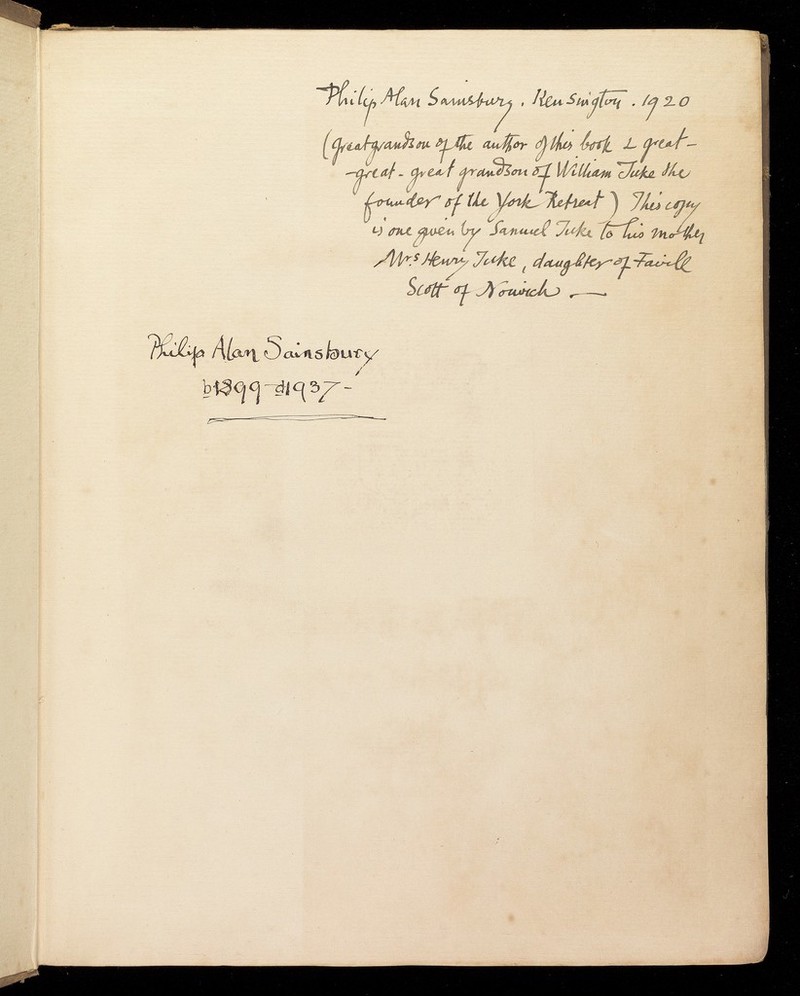 Philip Alan Sainsbury. Kensington. 1920
(greatgrandson of the author of this book & great-
-great-great grandson of William Tuke the
founder of the York Retreat) This copy
is one given by Samuel Tuke to his mother
Mrs Henry Tuke, daughter of Favill
Scott of Norwich.—
Philip Alan Sainsbury
b1899-d1937-